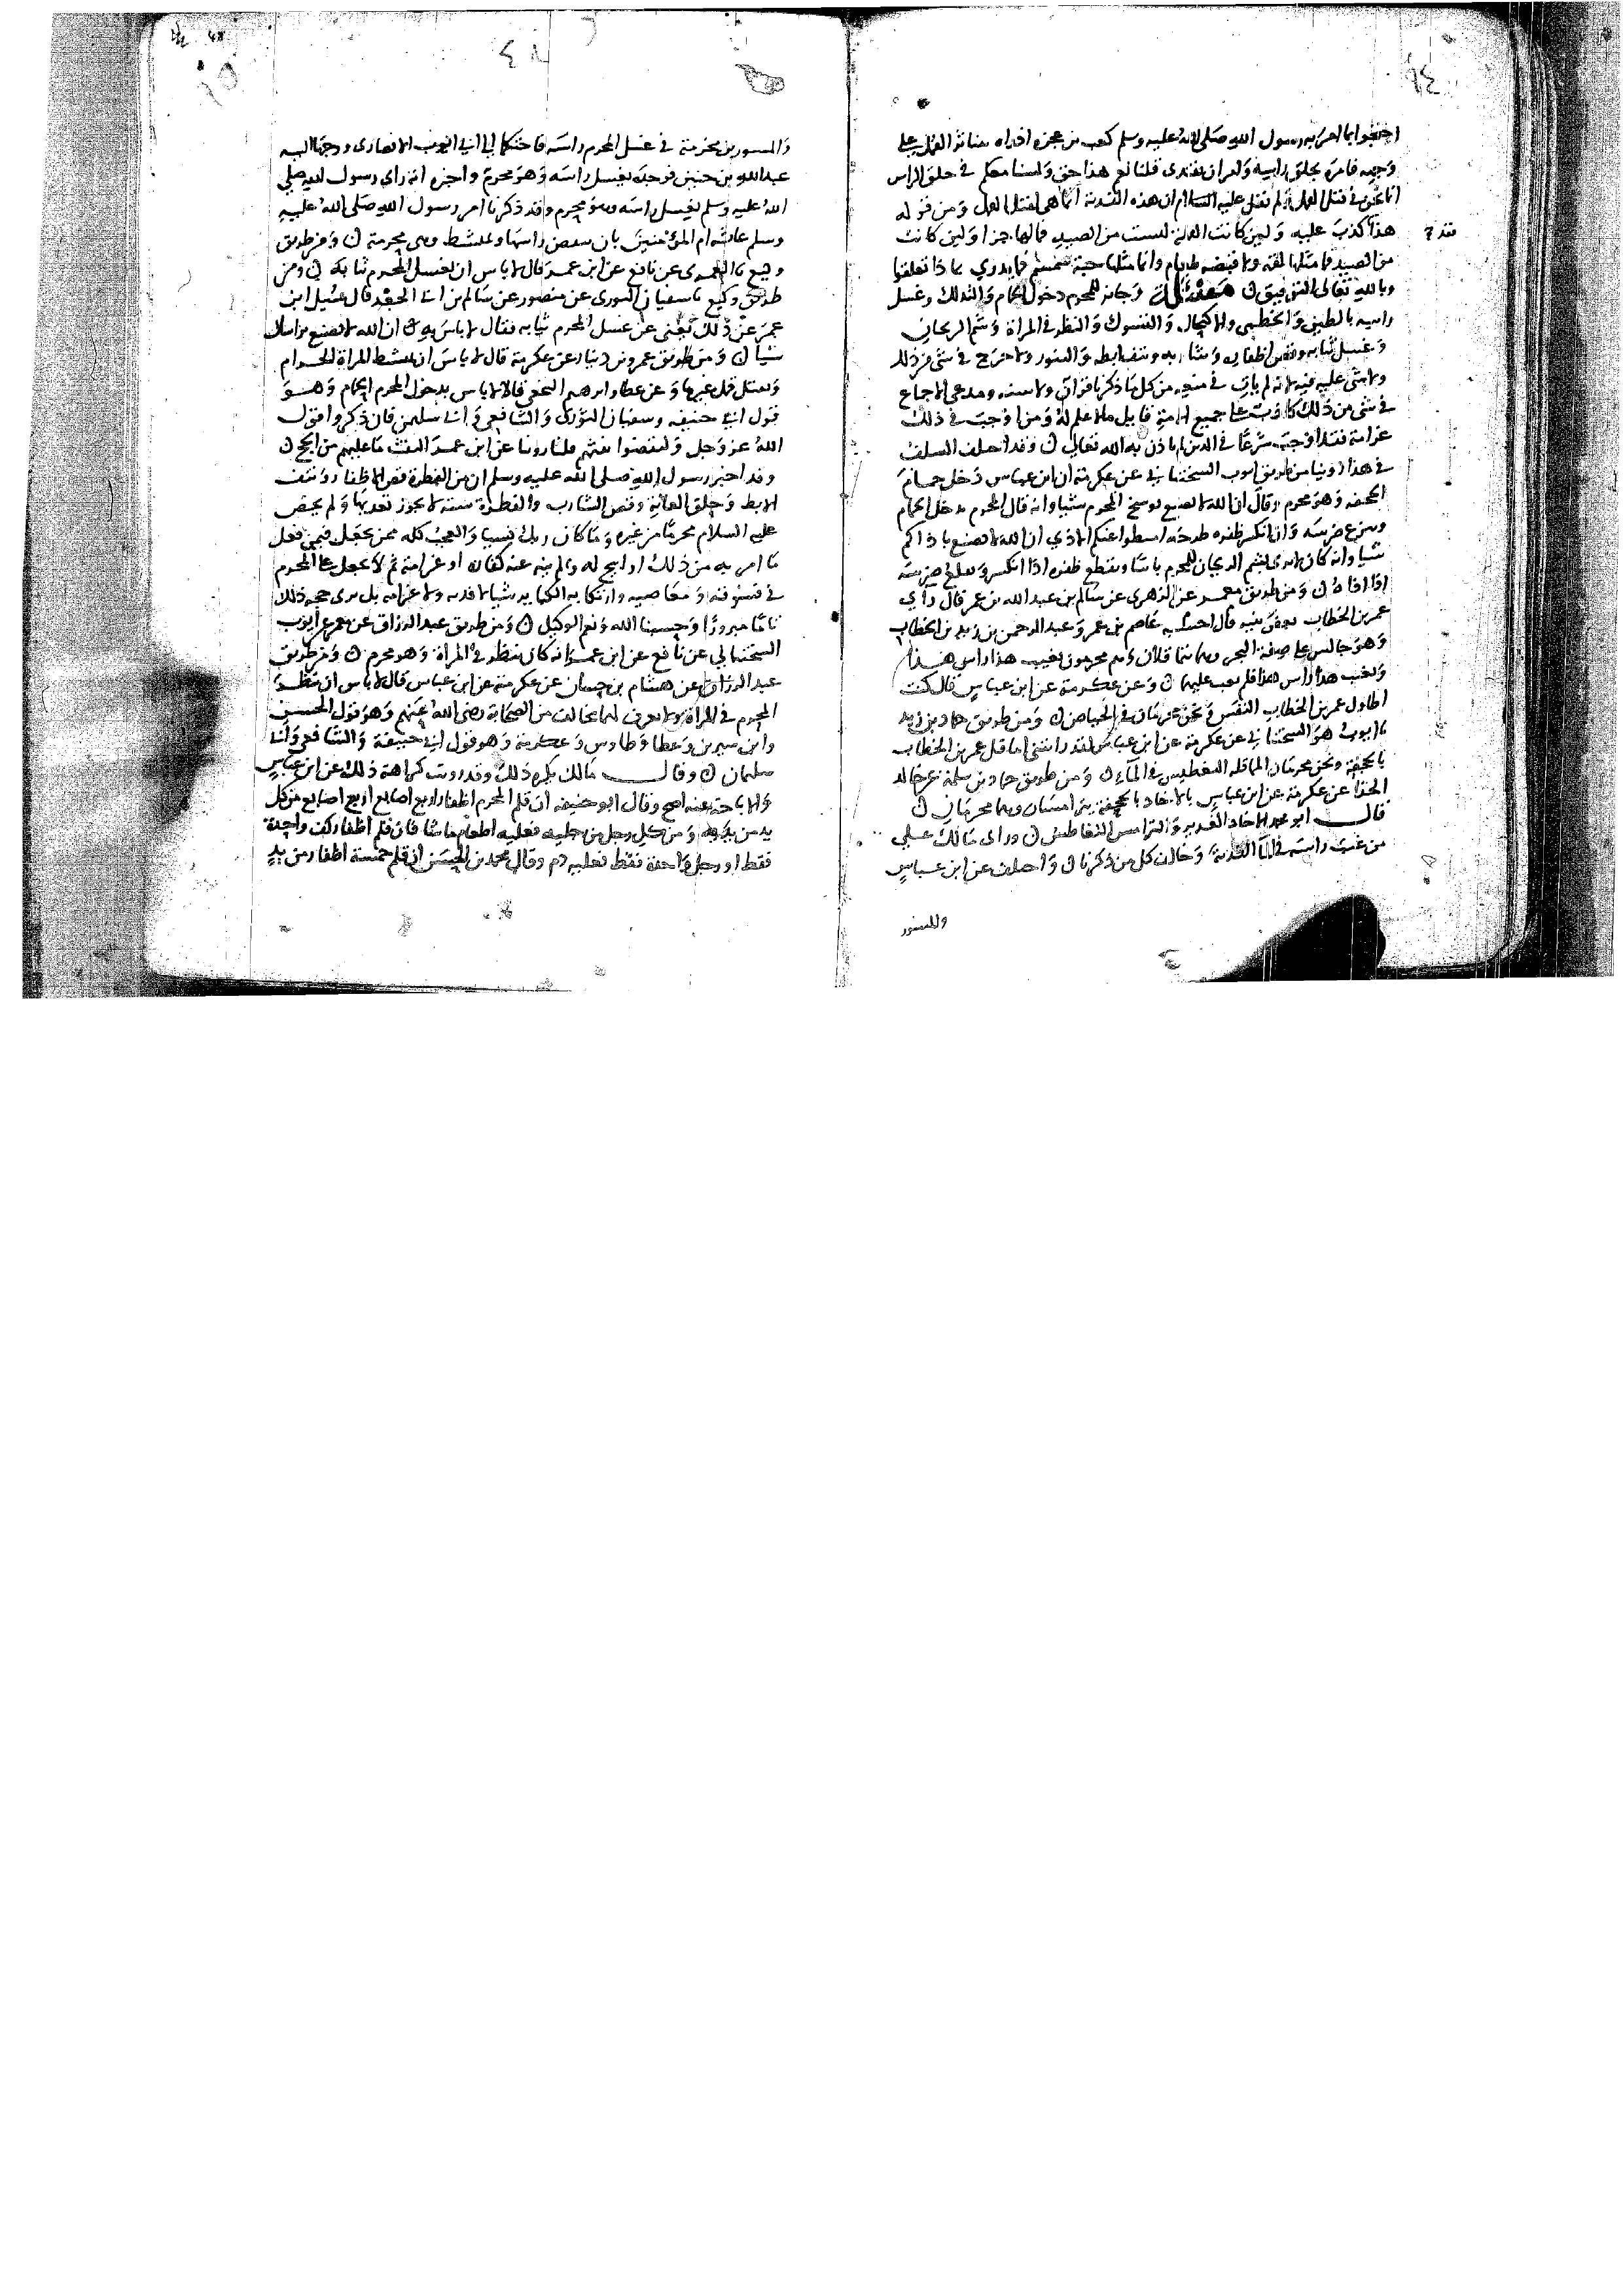 احتجوا بامر رسول الله صلى الله عليه وسلم كعب بن عجرة اذ راه يتناثر القمل على
وجهه فامره بحلق راسه ولمر ان يفتدى قلنا نعم هذا حق ولسنا معكم في حلق الراس
انما نحن في قتل القمل ولم يقل عليه السلام ان هذه الفدية انما هي لقتل القمل ومن قوله
هذا كذب عليه ولين كانت القملة ليست من الصيد فما لها جزا ولين كانت
من الصيد فما مثلها لقمة ولا قبضه طعام وانما مثلها حبة سمسم فما يدرى بماذا تعلقوا
وبالله تعالى التوفيق مسئلة وجائز للمحرم دخول الحمام والتدلك وغسل
راسه بالطين والخطمى والاكتحال والتسوك والنظر في المراة وشم الريحان
وغسل ثيابه وقص اظفاره وشاربه ونتف ابطه والتنور ولا حرج في شي من ذلك
ولا شي عليه فيه لانه لم يات في منعه من كل ما ذكرنا قران ولا سنه ومدعى الاجماع
في شي من ذلك كاذب على جميع الامة قايل ما لا علم له ومن اوجب في ذلك
غرامة فقد اوجب شرعا في الدين لم ياذن به الله تعالى وقد اختلف السلف
في هذا روينا من طريق ايوب السختياني عن عكرمة ان ابن عباس دخل حمام
الجحفه وهو محرم وقال ان الله لا يصنع بوسخ المحرم شيا وانه قال المحرم يدخل الحمام
وينزع ضرسه وان انكسر ظفره طرحه اميطوا عنكم الاذى ان الله لا يصنع باذاكم
شيا وانه كان لا يرى بشم الريحان للمحرم باسا ويقطع ظفره اذا انكسر ويقلع ضرسه
اذا اذاه ومن طريق معمر عن الزهرى عن سالم بن عبدالله بن عمر قال راى
عمر بن الخطاب بعض بنيه قال احسبه عاصم بن عمر وعبد الرحمن بن زيد بن الخطاب
وهو جالس على ضفة البحر وهما يتماقلان وهم محرمون يغيب هذا راس هذا
ويغيب هذا راس هذا فلم يعب عليهما وعن عكرمة عن ابن عباس قال كنت
اطاول عمر بن الخطاب النفس ونحن محرمان في الحياض ومن طريق حماد بن زيد
نا ايوب هو السختياني عن عكرمة عن ابن عباس لقد رايتني اماقل عمر بن الخطاب
بالجحفة ونحن محرمان المماقلة التغطيس في الماء ومن طريق حماد بن سلمة عن خالد
الحذا عن عكرمة عن ابن عباس بالاخاد بالجحفة يترامسان وهما محرمان
قال ابو محمد الاخاد الغدير والترامس التغاطس وراى مالك على
من غيب راسه في الما الفدية وخالف كل من ذكرنا واختلف عن ابن عباس
والمسور
والمسور بن مخرمة في غسل المحرم راسه فاحتكما الى ابي ايوب الانصارى ووجها اليه
عبدالله بن حنين فوجده يغسل راسه وهو محرم واخبره انه راى رسول الله صلى
الله عليه وسلم يغسل راسه وهو محرم وقد ذكرنا امر رسول الله صلى الله عليه
وسلم عايشه ام المؤمنين بان تنقض راسها وتمتشط وهى محرمة ومن طريق
وكيع نا العمرى عن نافع عن ابن عمر قال لا باس ان يغسل المحرم ثيابه ومن
طريق وكيع نا سفيان الثورى عن منصور عن سالم بن ابي الجعد قال سئل ابن
عمر عن ذلك يعنى عن غسل المحرم ثيابه فقال لا باس به ان الله لا يصنع بدرنك
شيا ومن طريق عمرو بن دينار عن عكرمة قال لا باس ان تمتشط المراة الحرام
وتقتل قمل غيرها وعن عطا وابرهيم النخعى قالا لا باس بدخول المحرم الحمام وهو
قول ابي حنيفه وسفيان الثورى والشافعى وابي سليمن فان ذكروا قول
الله عز وجل وليقضوا تفثهم قلنا روينا عن ابن عمر التفث ما عليهم من الحج
وقد اخبر رسول الله صلى الله عليه وسلم ان من الفطرة قص الاظفار ونتف
الابط وحلق العانة وقص الشارب والفطرة سنة لا يجوز تعديها ولم يخص
عليه السلام محرما من غيره وما كان ربك نسيا والعجب كله ممن يجعل فيمن فعل
ما امر به من ذلك او ابيح له ولم ينه عنه كفارة او غرامة ثم لا يجعل على المحرم
في فسوقه ومعاصيه وارتكابه الكباير شيا لا فدية ولا غرامة بل يرى حجه ذلك
تاما مبرورا وحسبنا الله ونعم الوكيل ومن طريق عبدالرزاق عن معمر عن ايوب
السختياني عن نافع عن ابن عمر انه كان ينظر في المراة وهو محرم ومن طريق
عبد الرزاق عن هشام بن حسان عن عكرمة عن ابن عباس قال لا باس ان ينظر
المحرم في المراة ولا يعرف لهما مخالف من الصحابة رضى الله عنهم وهو قول الحسن
وابن سيرين وعطا وطاوس وعكرمة وهو قول ابي حنيفة والشافعى وابي
سليمان وقال مالك يكره ذلك وقد روت كراهة ذلك عن ابن عباس
والاباحة عنه اصح وقال ابو حنيفه ان قلم المحرم اظفار اربع اصابع اربع اصابع من كل
يد من يديه ومن كل رجل من رجليه فعليه اطعام ما شا فان قلم اظفار كف واحدة
فقط او رجل واحدة فقط فعليه دم وقال محمد بن الحسن ان قلم خمسة اظفار من يد